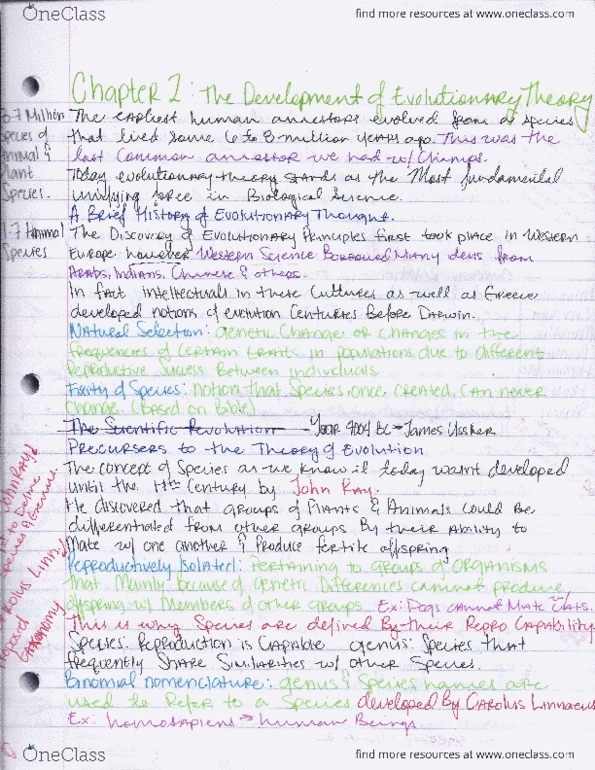 OneClass
find more resources at www.oneclass.com
Chapter 2: The Development of Evolutionary Theory
The earliest human ancestors evolved from a species
that lived some 6 to 8 million years ago. This was the
last common ancestor we had w/ Chimps.
Today evolutionary theory stands as the Most fundamental
unifying force in Biological Science.
Million
species of
Animal &
Plant
Species.
A Brief History of Evolutionary Thought.
The Discovery of Evolutionary Principles first took place in Western
Europe however Western Science Borrowed Many ideas from
Arabs, Indians, Chinese & others.
1.7 Animal
Species
In fact intellectuals in these Cultures as well as Greece
developed notions of evolution Centuries Before Darwin.
Natural Selection: genetic Change or changes in the
frequencies of certain traits in populations due to different
Reproductive success Between individuals.
Fixity of Species: notion that Species, once, created, can never
Change. (Based on bible)
The Scientific Revolution Year 4004 BC - James Ussher
Precursers to the Theory of Evolution
The concept of Species as we know it today wasn't developed
until the 17th Century by John Ray.
He discovered that groups of Plants & Animals could be
differentiated from other groups By their Ability to
Mate w/ one another & Produce fertile offspring
Reproductively Isolated: Pertaining to groups of organisms
that Mainly because of genetic Differences cannot produce
offspring w/ Members of other groups. Ex: Dogs cannot Mate w/ Cats.
This is why Species are defined By their Repro Capability
Species: Reproduction is Capable genus: Species that
frequently Share Similarities w/ other Species.
Binomial nomenclature: genus & Species names are
used to Refer to a Species developed By Carolus Linnaeus
Ex: homosapiens → human Beings
John Ray
to Define
Species & Genus.
Carolus Linn
taxonomy
OneClass
find more resources at www.oneclass.com